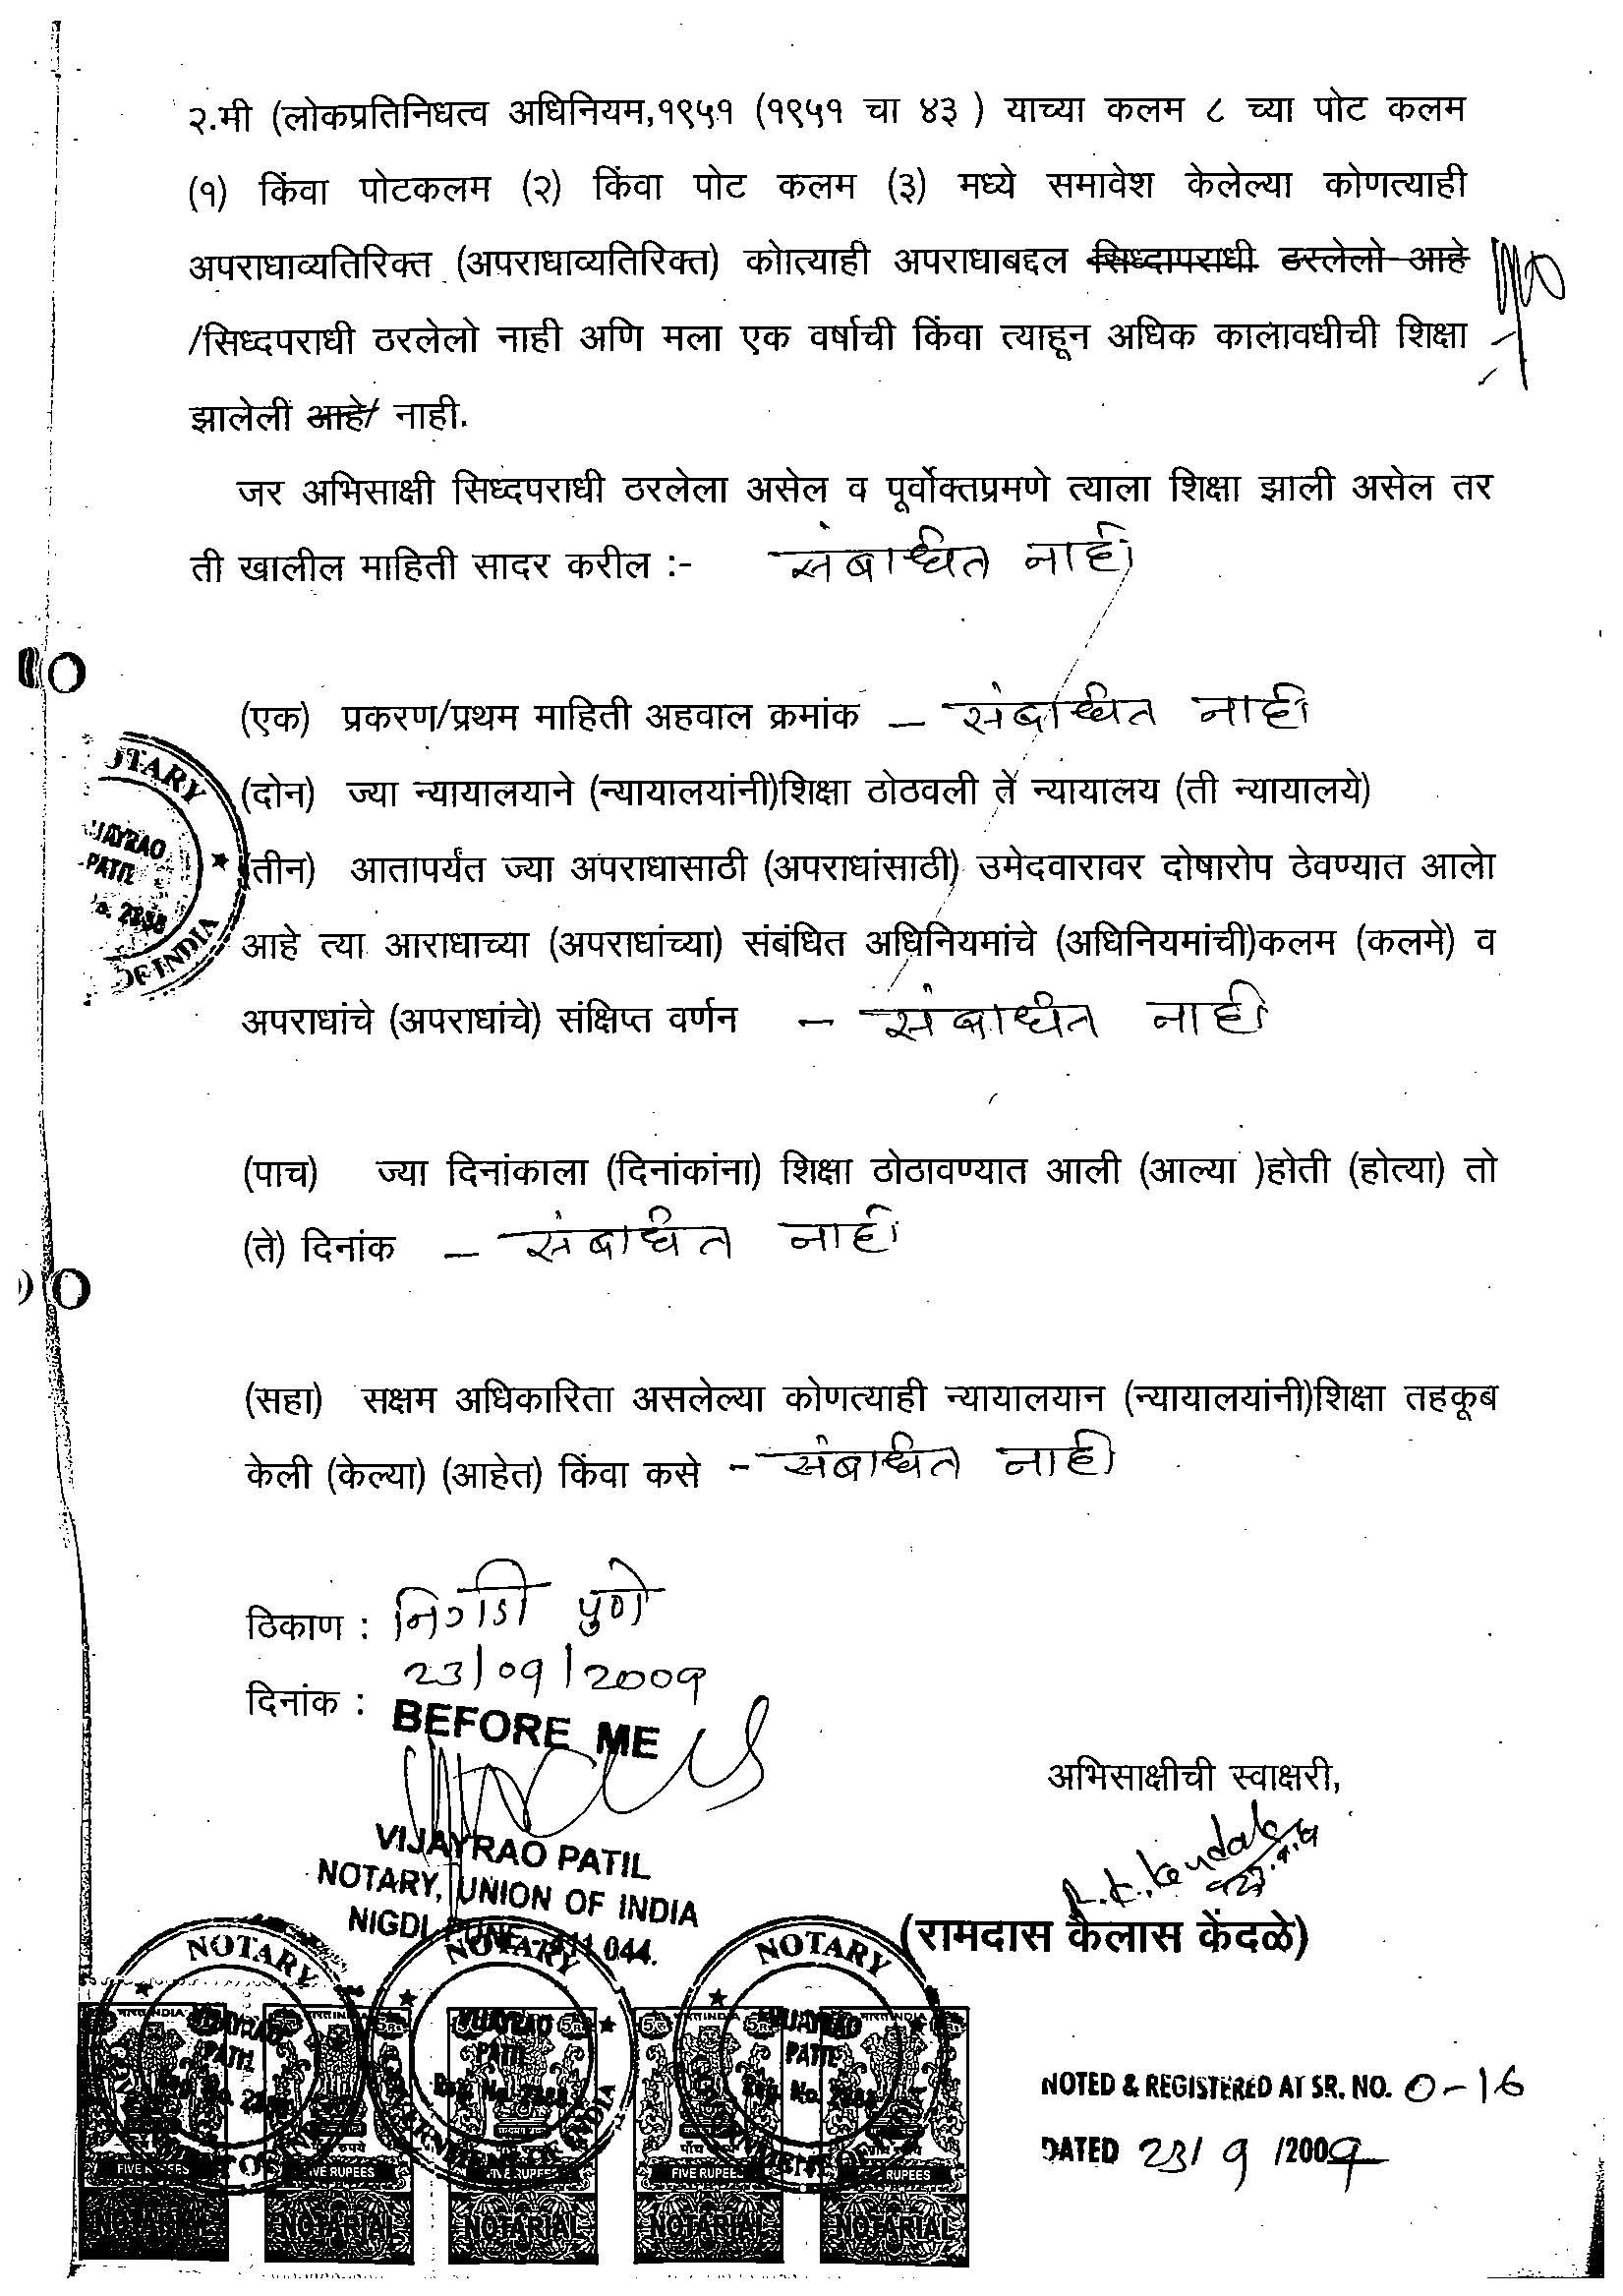 २.मी (लोकप्रतिनिधत्व अधिनियम,१९५१ (१९५१ चा ४३ ) याच्या कलम ८ च्या पोट कलम
(१) किंवा पोटकलम (२) किंवा पोट कलम (३) मध्ये समावेश केलेल्या कोणत्याही
अपराधाव्यतिरिक्त (अपराधाव्यतिरिक्त) कोात्याही अपराधाबद्दल सिध्दापराधी ठरलेलो आहे
/सिध्दपराधी ठरलेलो नाही अणि मला एक वर्षाची किंवा त्याहून अधिक कालावधीची शिक्षा
झालेली आहे/ नाही.
जर अभिसाक्षी सिध्दपराधी ठरलेला असेल व पूर्वोक्तप्रमणे त्याला शिक्षा झाली असेल तर
ती खालील माहिती सादर करील :- संबाधित नाही
(एक) प्रकरण/प्रथम माहिती अहवाल क्रमांक – संबाधित नाही
(दोन) ज्या न्यायालयाने (न्यायालयांनी)शिक्षा ठोठवली ते न्यायालय (ती न्यायालये)
(तीन) आतापर्यंत ज्या अपराधासाठी (अपराधांसाठी) उमेदवारावर दोषारोप ठेवण्यात आलेा
आहे त्या आराधाच्या (अपराधांच्या) संबंधित अधिनियमांचे (अधिनियमांची)कलम (कलमे) व
अपराधांचे (अपराधांचे) संक्षिप्त वर्णन – संबाधित नाही
(पाच) ज्या दिनांकाला (दिनांकांना) शिक्षा ठोठावण्यात आली (आल्या )होती (होत्या) तो
(ते) दिनांक – संबाधित नाही
(सहा) सक्षम अधिकारिता असलेल्या कोणत्याही न्यायालयान (न्यायालयांनी)शिक्षा तहकूब
केली (केल्या) (आहेत) किंवा कसे – संबाधित नाही
ठिकाण : निगडी पुणे
दिनांक : 23/09/2009
BEFORE ME
VIJAYRAO PATIL
NOTARY, UNION OF INDIA
NIGDI, PUNE - 411 044.
अभिसाक्षीची स्वाक्षरी,
R.K.Kendale
(रामदास कैलास केंदळे)
NOTED & REGISTERED AT SR. NO. 0-16
DATED 23/ 9 /2009
NOTARY
NOTARY
NOTARY
VIJAYRAO
PATIL
FIVE RUPEES
NOTARIAL
NOTARIAL
NOTARIAL
NOTARIAL
NOTARIAL